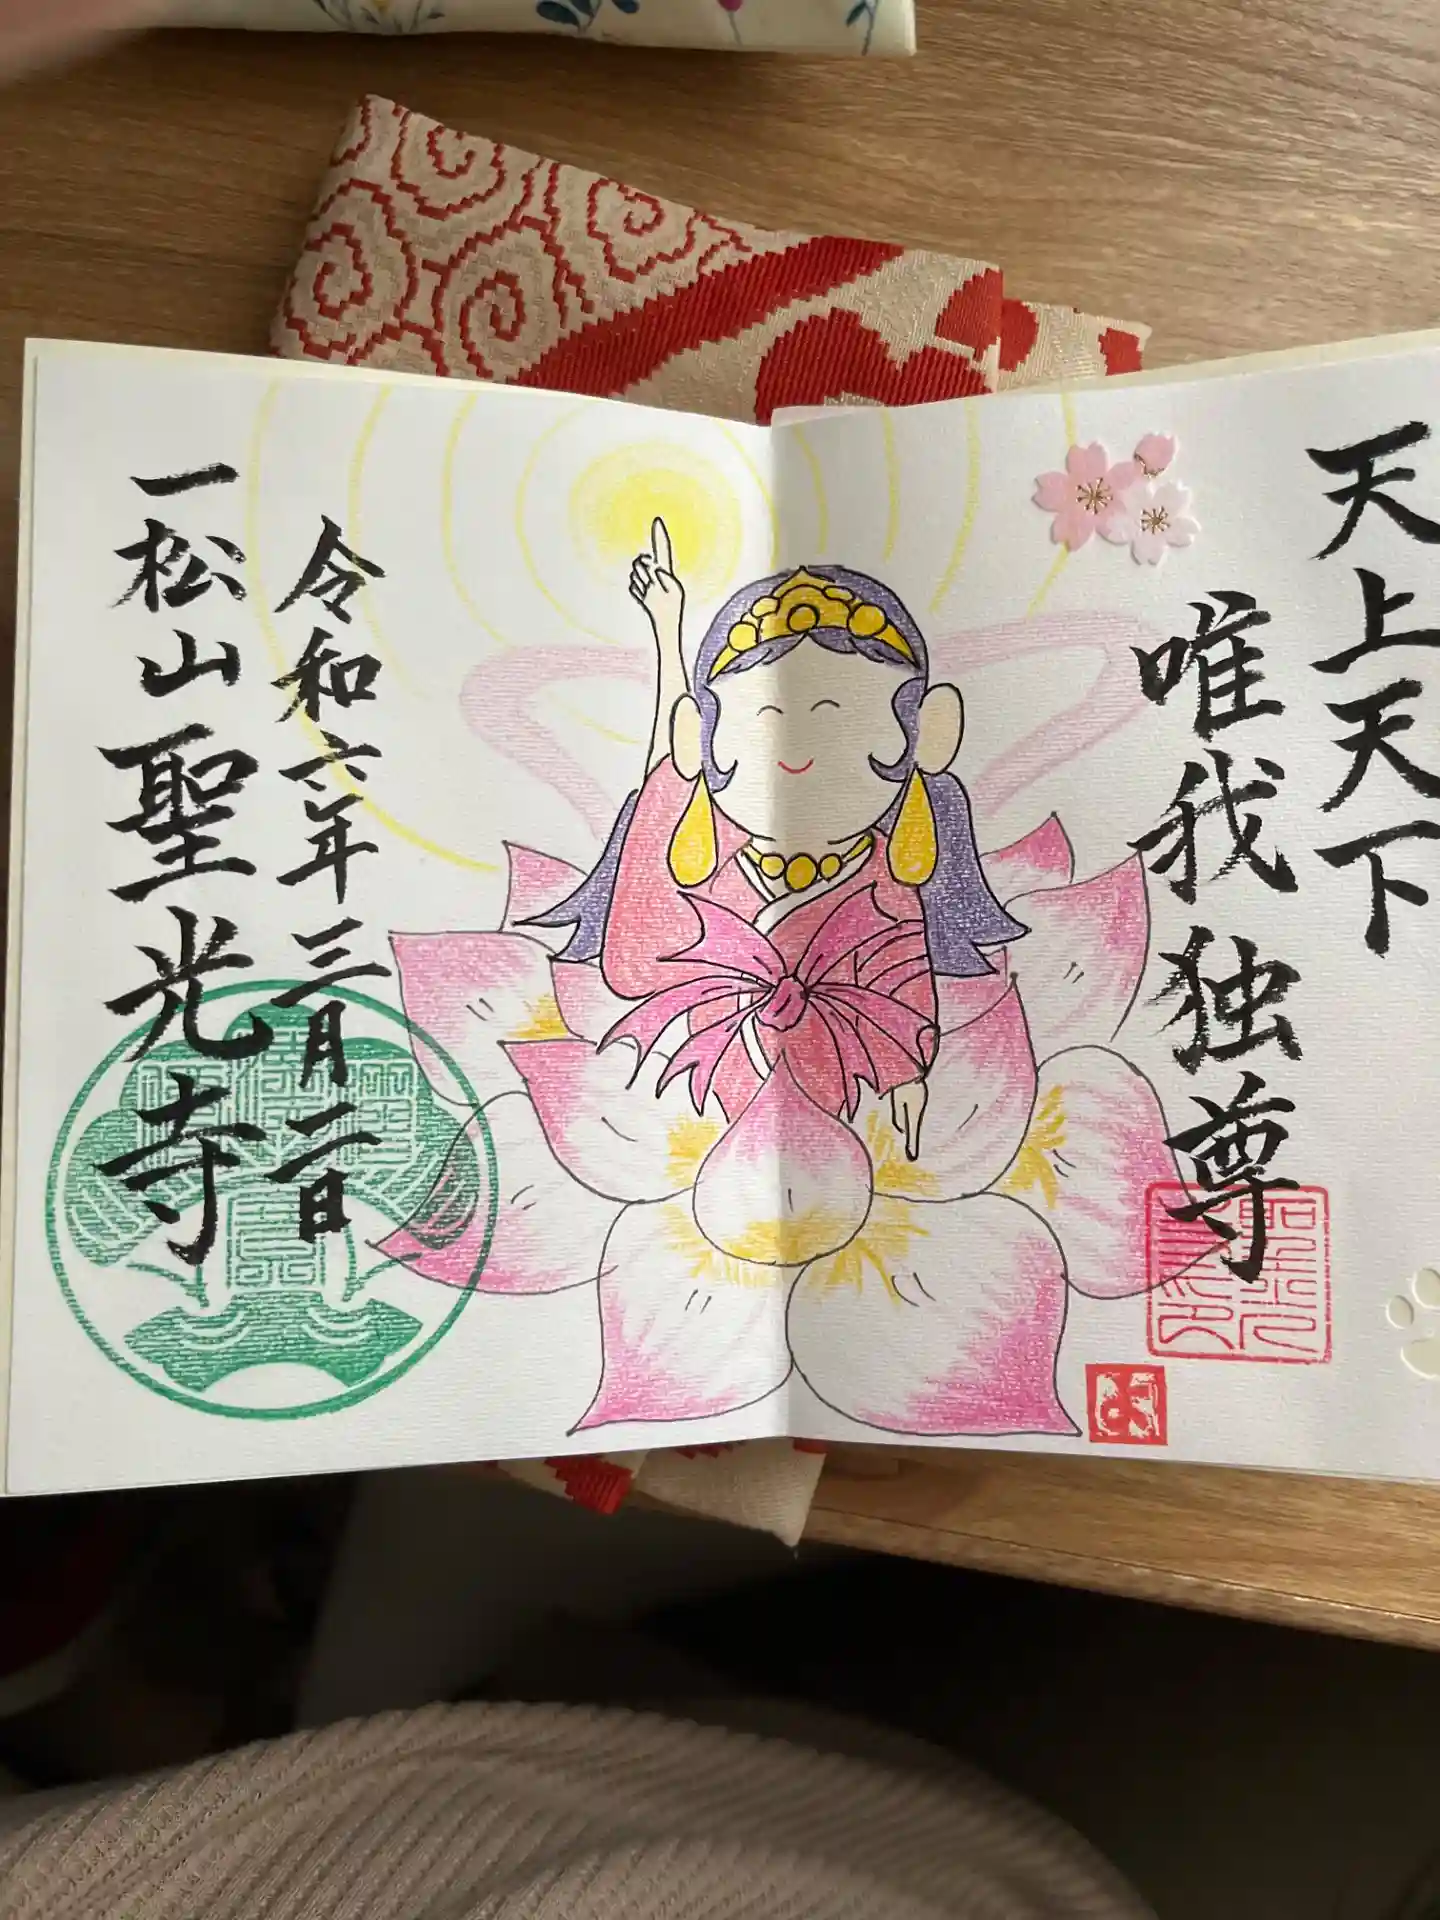 天上天下
唯我独尊
令和六年三月二日
一松山聖光寺